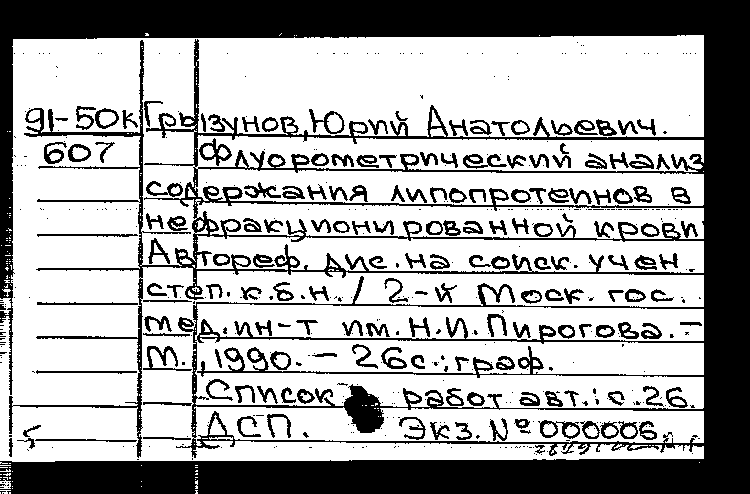 91-50к Грызунов, Юрий Анатольевич.
607 Флуорометрический анализ
содержания липопротеинов в
нефракционированной крови
Автореф. дис. на соиск. учен.
степ. к.б.н. / 2-й Моск. гос.
мед. ин-т им. Н.И. Пирогова. –
М., 1990. – 26с.; граф.
Список работ авт.: с. 26.
5 ДСП. Экз. № 000006.